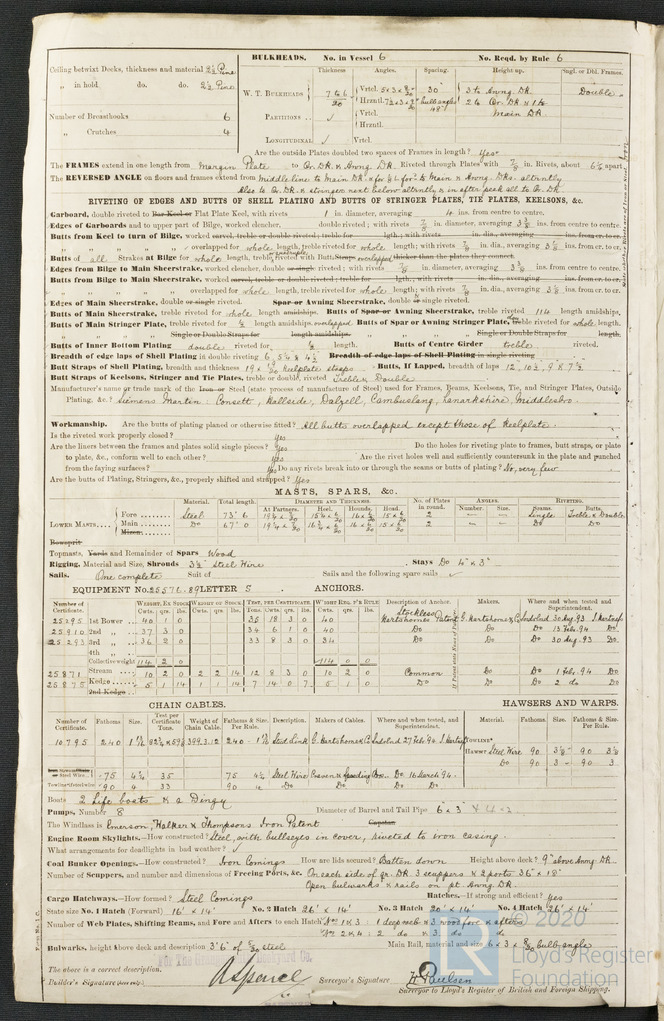 Ceiling betwixt Decks, thickness and material 2½ Pine
„ in hold do. do. 2½ Pine
Number of Breasthooks 6
„ Crutches 4
BULKHEADS. No. in Vessel 6 No. Reqd. by Rule 6
Thickness Angles. Spacing. Height up. Sngl. or Dbl. Frames.
W. T. BULKHEADS 7 to 6 / 20 Vrtcl. 30 3 to Awng. DK Double
Hrzntl. bulb angles 48 2 to Qr. DK & 1 to
PARTITIONS Vrtcl. Main DK
Hrzntl.
LONGITUDINAL Vrtcl.
Are the outside Plates doubled two spaces of Frames in length? Yes
The FRAMES extend in one length from Margin Plate to Qr. DK & Awng. DK Riveted through Plates with 7/8 in. Rivets, about 6½ apart
The REVERSED ANGLE on floors and frames extend from middle line to Main DK & for
Also to Qr. DK & stringer next below alternly & in after peak all to Qr. DK
RIVETING OF EDGES AND BUTTS OF SHELL PLATING AND BUTTS OF STRINGER PLATES, TIE PLATES, KEELSONS, &c.
Garboard, double riveted to Bar Keel or Flat Plate Keel, with rivets 1 in diameter, averaging 4 ins. from centre to centre.
Edges of Garboards and to upper part of Bilge, worked clencher, double riveted; with rivets 7/8 in. diameter, averaging 3⅜ ins. from centre to centre.
Butts from Keel to turn of Bilge, worked carvel, treble or double riveted; treble for lgth.; with rivets in. dia., averaging ins. from cr. to cr.
„ „ „ „ overlapped for whole length, treble riveted for whole length; with rivets 7/8 in. dia., averaging 3½ ins. from cr. to cr.
Butts of all Strakes at Bilge for whole length, treble riveted with Butt Straps overlapped thicker than the plates they connect.
Edges from Bilge to Main Sheerstrake, worked clencher, double or single riveted; rivets 7/8 in. diameter, averaging 3⅜ ins. from centre to centre.
Butts from Bilge to Main Sheerstrake, worked carvel, treble or double riveted; treble for lgth.; with rivets in. dia., averaging ins. from cr. to cr.
„ „ „ overlapped for whole length, treble riveted for whole length; with rivets 7/8 in. dia., averaging 3½ ins. from cr. to cr.
Edges of Main Sheerstrake, double or single riveted. Spar or Awning Sheerstrake, double or single riveted.
Butts of Main Sheerstrake, treble riveted for whole length amidships. Butts of Spar or Awning Sheerstrake, treble riveted 114 length amidships.
Butts of Main Stringer Plate, treble riveted for ½ length amidships overlapped. Butts of Spar or Awning Stringer Plate, treble riveted for whole length.
Single or Double Straps for length amidships. Single or Double Straps for length.
Butts of Inner Bottom Plating double riveted for ½ length. Butts of Centre Girder treble riveted.
Breadth of edge laps of Shell Plating in double riveting 6, 5¼ & 4½ Breadth of edge laps of Shell Plating in single riveting
Butt Straps of Shell Plating, breadth and thickness 19 x keelplate straps Butts, If Lapped, breadth of laps 12, 10½, 9 & 7½
Butt Straps of Keelsons, Stringer and Tie Plates, treble or double riveted Treble & Double
Manufacturer's name or trade mark of the Iron or Steel (state process of manufacture of Steel) used for Frames, Beams, Keelsons, Tie, and Stringer Plates, Outside
Plating, &c.? Siemens Martin: Consett, Hallside, Dalzell, Cambuslang, Lanarkshire, Middlesbro.
Workmanship. Are the butts of plating planed or otherwise fitted? All butts overlapped except those of Keelplate.
Is the riveted work properly closed? Yes
Are the liners between the frames and plates solid single pieces? Yes Do the holes for riveting plate to frames, butt straps, or plate
to plate, &c., conform well to each other? Yes Are the rivet holes well and sufficiently countersunk in the plate and punched
from the faying surfaces? Yes Do any rivets break into or through the seams or butts of plating? No, very few
Are the butts of Plating, Stringers, &c., properly shifted and strapped? Yes
MASTS, SPARS, &c.
Material. Total length. DIAMETER AND THICKNESS. No. of Plates in round. ANGLES. RIVETING.
At Partners. Heel. Hounds. Head. Number. Size. Seams. Butts.
LOWER MASTS Fore Steel 73' 6 2 Single Treble & Double
Main Do 67' 0 2 Do Do
Mizen
Bowsprit
Topmasts, Yards and Remainder of Spars Wood
Rigging, Material and Size, Shrouds 3½ Steel Wire Stays Do 4" x 3"
Sails. One complete Suit of Sails and the following spare sails
EQUIPMENT No. 25576.89 LETTER S ANCHORS.
Number of Certificate. WEIGHT, EX STOCK WEIGHT OF STOCK TEST, PER CERTIFICATE WEIGHT REQ. P'R RULE Description of Anchor. Makers. Where and when tested and Superintendent.
Cwts. qrs. lbs. Cwts. qrs. lbs. Tons. Cwts. qrs. lbs. Cwts. qrs. lbs.
25295 1st Bower 40 1 0 35 18 3 0 40 Stockless Hartshornes Patent G. Hartshorne & Co Sndrlnd 30 Aug. 93
25910 2nd „ 37 3 0 34 6 1 0 40 Do Do Do 13 Feb. 94 Do
25293 3rd „ 36 2 0 33 8 3 0 34 Do Do Do 30 Aug. 93 Do
4th „
Collective weight 114 2 0 114 0 0
25871 Stream 10 2 0 2 2 14 12 8 3 0 10 2 0 Common Do Do 1 Feb. 94 Do
25875 Kedge 5 1 14 1 1 14 7 14 0 7 5 1 0 Do Do Do 2 do Do
2nd Kedge
CHAIN CABLES. HAWSERS AND WARPS.
Number of Certificate. Fathoms. Size. Test per Certificate Tons. Weight of Chain Cable. Fathoms & Size. Per Rule. Description. Makers of Cables. Where and when tested, and Superintendent. Material. Fathoms. Size. Fathoms & Size. Per Rule.
10795 240 399.3.12 240 Stud Link G. Hartshorne & Co Sndrlnd 27 Feb. 90 TOWLINE
HAWSER Steel Wire 90 3½ 90 3½
Do 90 3 90 3
or Steel Wire 75 4¼ 35 75 4¼ Steel Wire Craven & Do 16 March 94
90 4 33 90 4 Do Do Do Do
Boats 2 Life boats & a Dingy
Pumps, Number 8 Diameter of Barrel and Tail Pipe 6" x 3"
The Windlass is Emerson, Walker & Thompsons Iron Patent Capstan
Engine Room Skylights.—How constructed? Steel, with bullseyes in cover, riveted to iron casing.
What arrangements for deadlights in bad weather?
Coal Bunker Openings.—How constructed? Iron Comings How are lids secured? Batten down Height above deck? 9" above Awng. DK
Number of Scuppers, and number and dimensions of Freeing Ports, &c. On each side of Qr. DK 3 scuppers & 2 ports 36" x 18"
Open bulwarks & rails on Awng. DK
Cargo Hatchways.—How formed? Steel Comings Hatches.—If strong and efficient? Yes
State size No. 1 Hatch (Forward) 16' x 14' No. 2 Hatch 26' x 14' No. 3 Hatch 20' x 14' No. 4 Hatch 26' x 14'
Number of Web Plates, Shifting Beams, and Fore and Afters to each Hatch Nos 1 & 3: 1 deep web & 3 wood fore & afters
Nos 2 & 4: 2 do & 3 do do
Bulwarks, height above deck and description 3' 6" of steel Main Rail, material and size 6 x 3 x bulb angle
The above is a correct description.
Builder's Signature Surveyor's Signature H. Paulsen
Surveyor to Lloyd's Register of British and Foreign Shipping.
© 2020
Lloyd's Register
Foundation